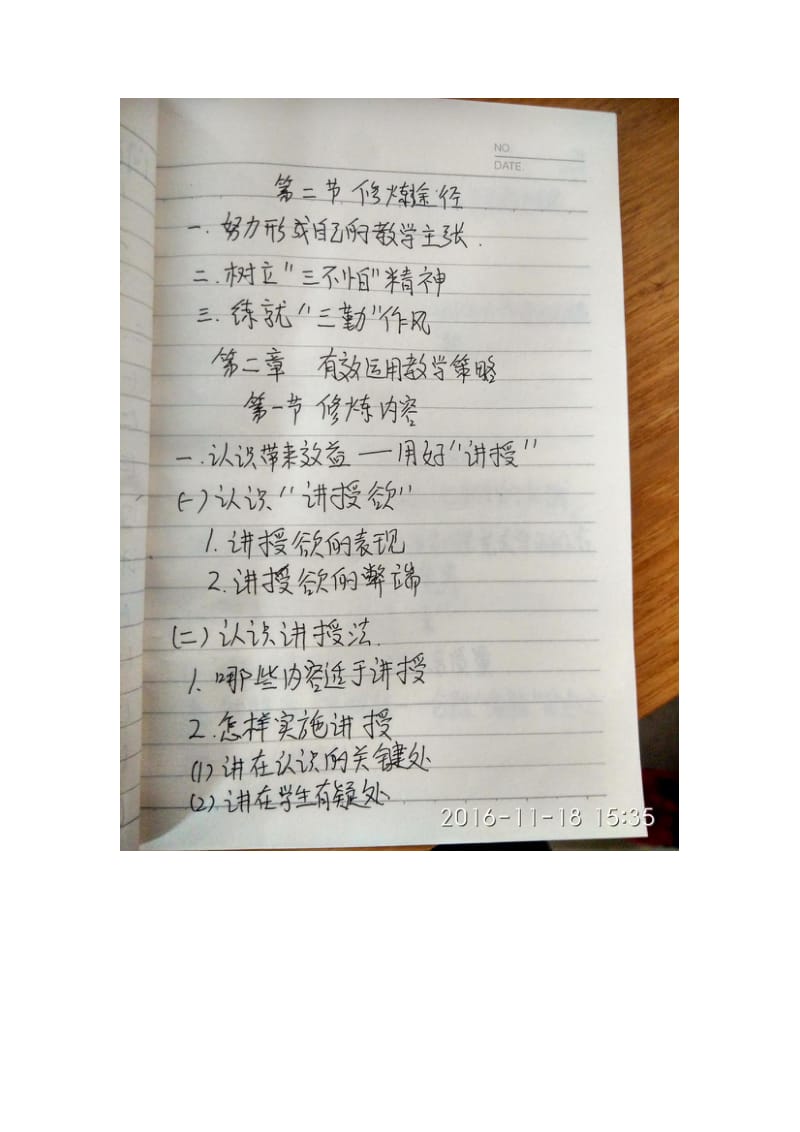 NO.
DATE.
第二节 修炼途径
一.努力形成自己的教学主张.
二.树立"三不怕"精神
三.练就"三勤"作风
第二章 有效运用教学策略
第一节 修炼内容
一.认识带来效益——用好"讲授"
(一)认识"讲授欲"
1.讲授欲的表现
2.讲授欲的弊端
(二)认识讲授法.
1.哪些内容适于讲授
2.怎样实施讲授
(1)讲在认识的关键处
(2)讲在学生有疑处
2016-11-18 15:35